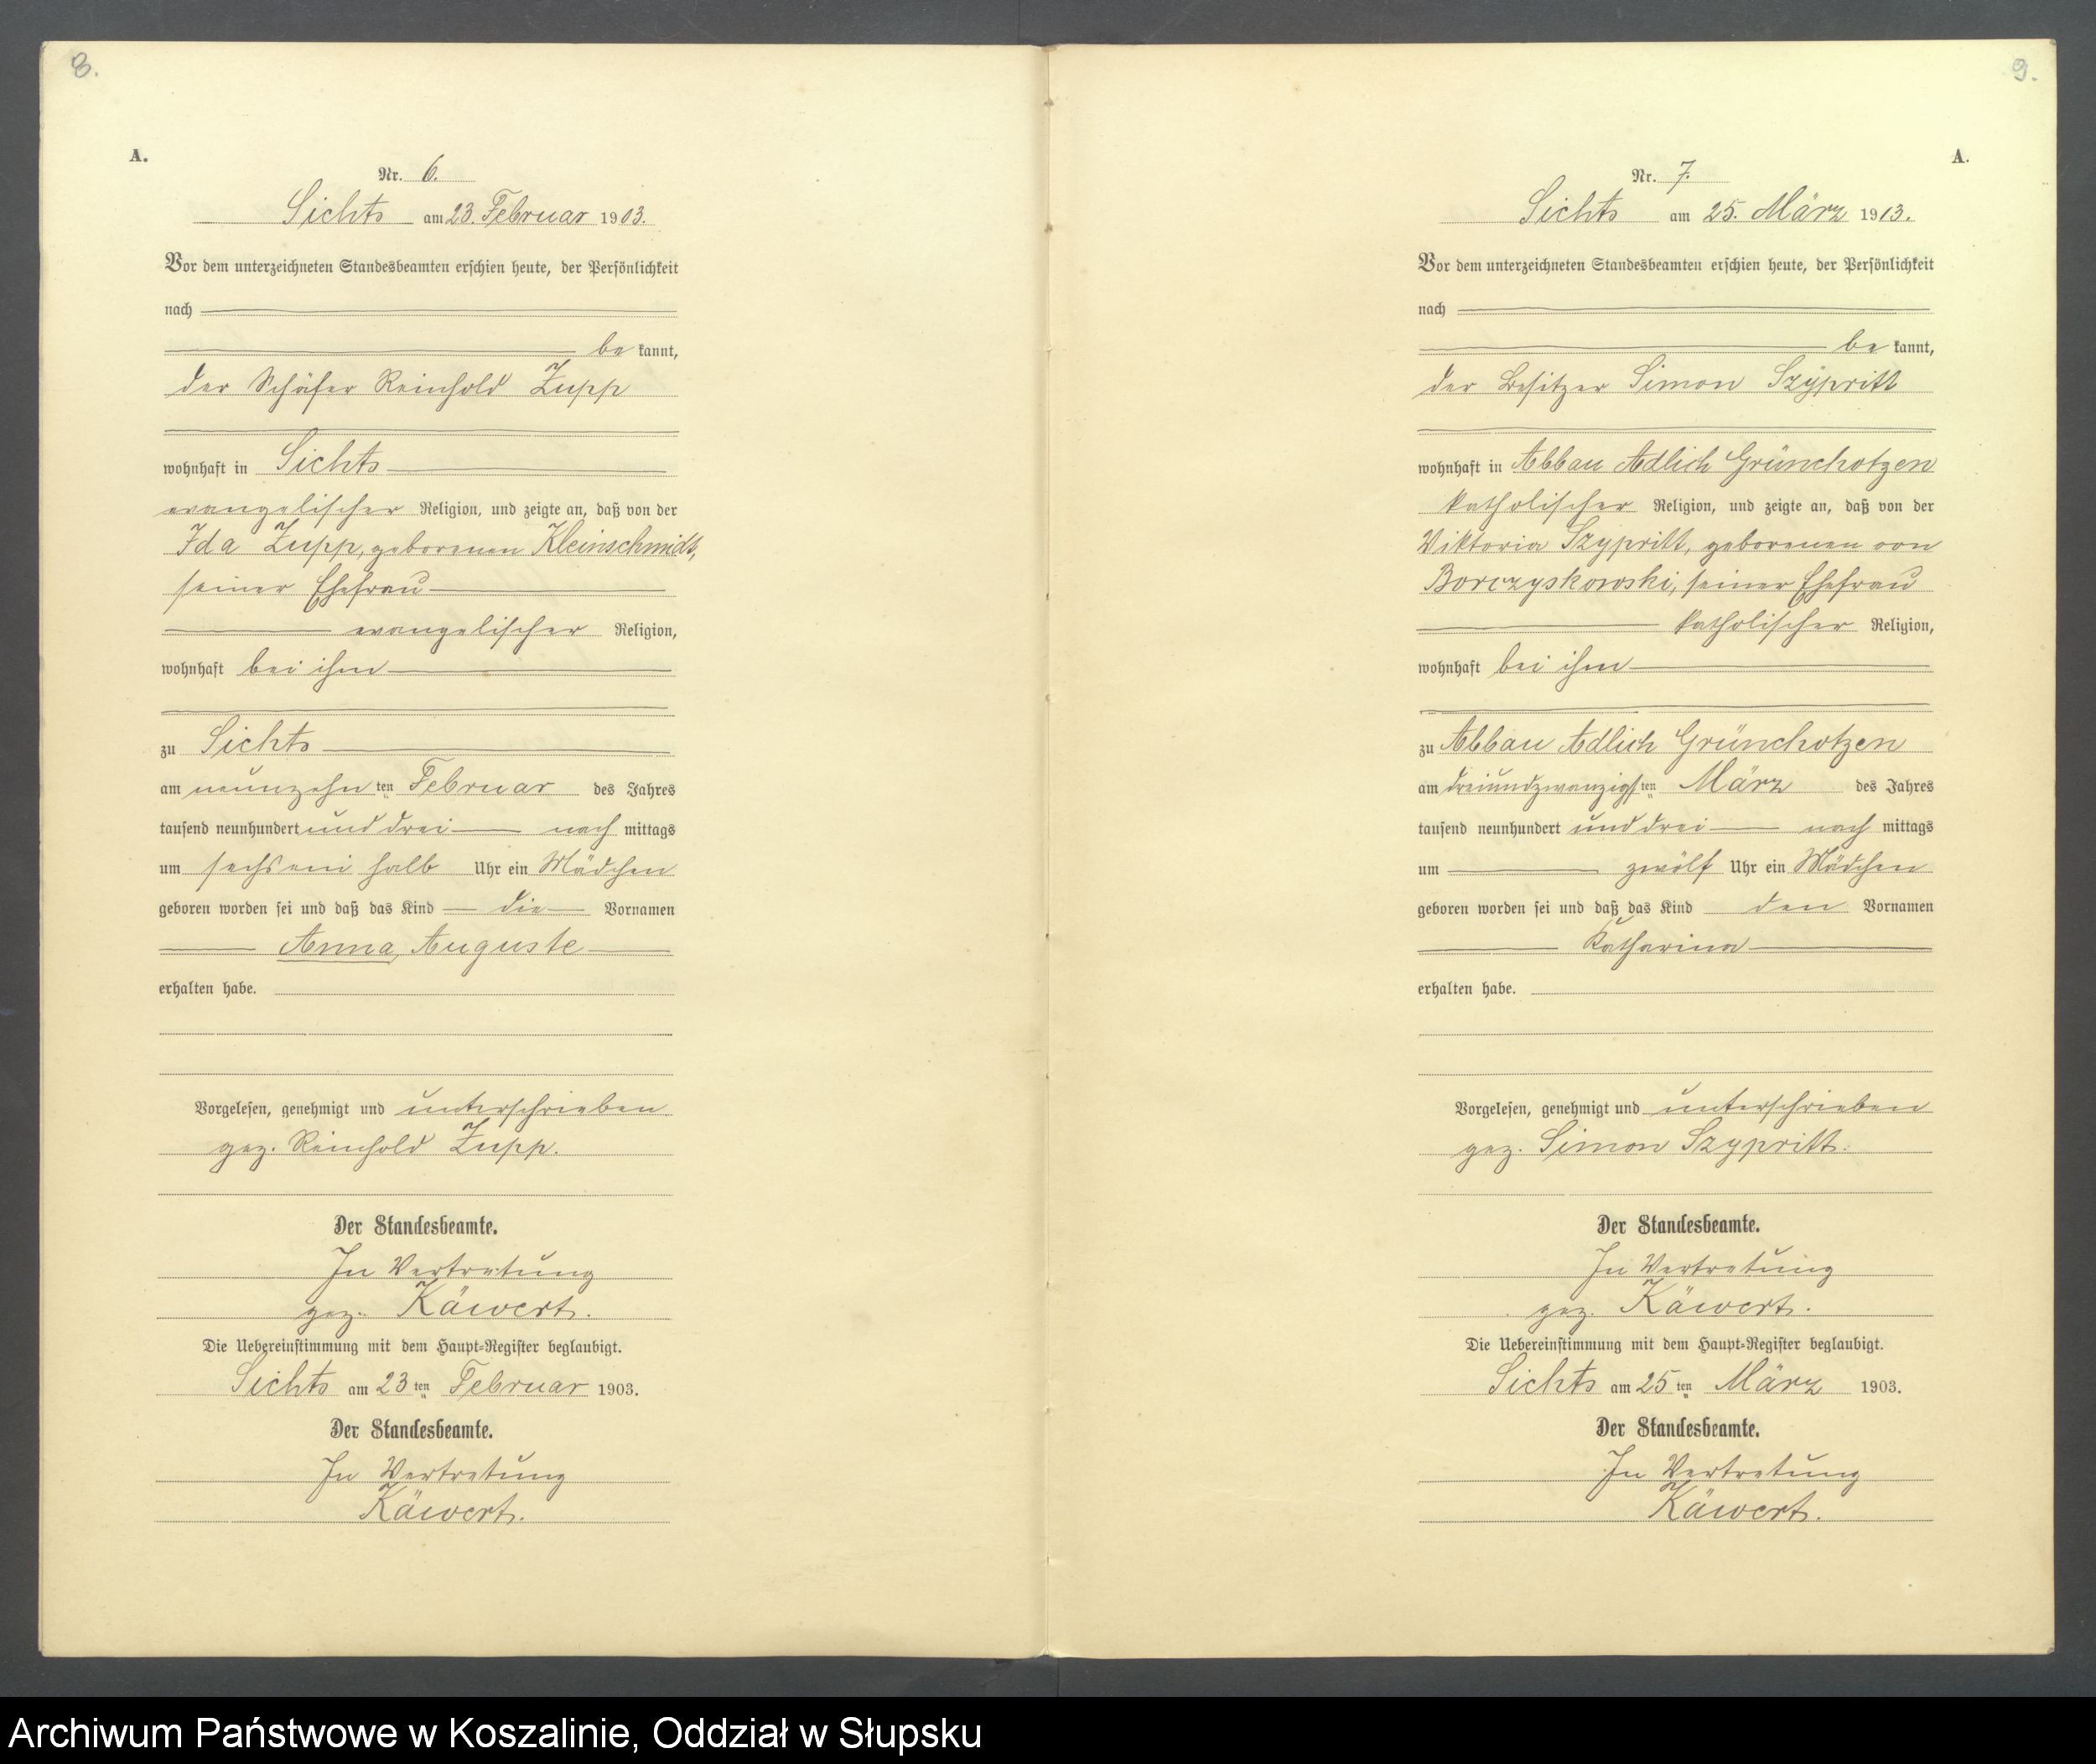 8.
A.
Nr. 6.
Sichts am 23. Februar 1903.
Vor dem unterzeichneten Standesbeamten erschien heute, der Persönlichkeit
nach
be kannt,
der Schäfer Reinhold Zupp
wohnhaft in Sichts
evangelischer Religion, und zeigte an, daß von der
Ida Zupp, geborenen Kleinschmidt,
seiner Ehefrau
evangelischer Religion,
wohnhaft bei ihm
zu Sichts
am neunzehn ten Februar des Jahres
tausend neunhundert und drei nach mittags
um sechs halb Uhr ein Mädchen
geboren worden sei und daß das Kind die Vornamen
Anna, Auguste
erhalten habe.
Vorgelesen, genehmigt und unterschrieben
gez. Reinhold Zupp.
Der Standesbeamte.
In Vertretung
gez. Käwert.
Die Uebereinstimmung mit dem Haupt-Register beglaubigt.
Sichts am 23 ten Februar 1903.
Der Standesbeamte.
In Vertretung
Käwert.
9.
A.
Nr. 7.
Sichts am 25. März 1913.
Vor dem unterzeichneten Standesbeamten erschien heute, der Persönlichkeit
nach
be kannt,
der Besitzer Simon Szypritt
wohnhaft in Abbau Adlich Grünchotzen
katholischer Religion, und zeigte an, daß von der
Viktoria Szypritt, geborenen von
Borczyskowski, seiner Ehefrau
katholischer Religion,
wohnhaft bei ihm
zu Abbau Adlich Grünchotzen
am dreiundzwanzigs ten März des Jahres
tausend neunhundert und drei nach mittags
um zwölf Uhr ein Mädchen
geboren worden sei und daß das Kind den Vornamen
Katharina
erhalten habe.
Vorgelesen, genehmigt und unterschrieben
gez. Simon Szypritt.
Der Standesbeamte.
In Vertretung
gez. Käwert.
Die Uebereinstimmung mit dem Haupt-Register beglaubigt.
Sichts am 25 ten März 1903.
Der Standesbeamte.
In Vertretung
Käwert.
Archiwum Państwowe w Koszalinie, Oddział w Słupsku